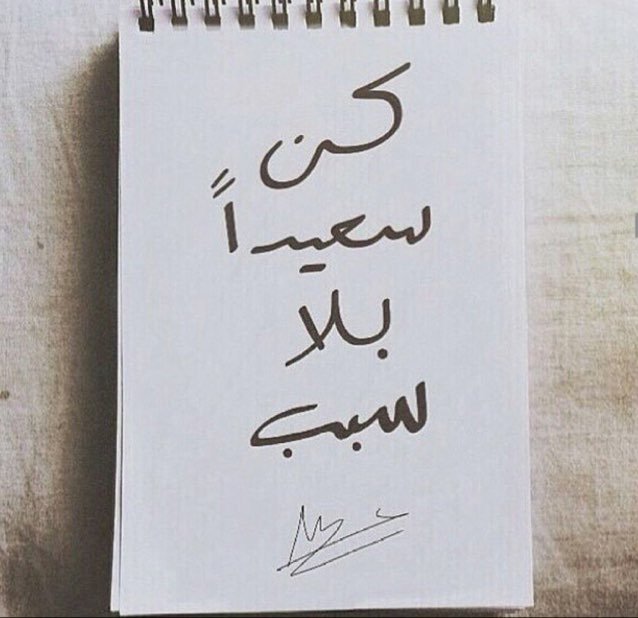 كن
سعيداً
بلا
سبب